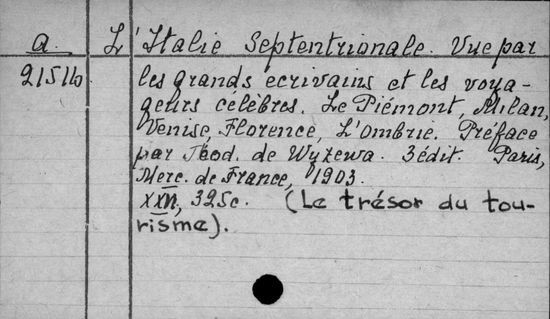 a. L'Italie Septentrionale. Vue par
21516 les grands écrivains et les voya-
geurs célèbres. Le Piémont, Milan,
Venise, Florence, L'Ombrie. Préface
par Téod. de Wyzewa. 3édit. Paris,
Merc. de France, 1903.
325c. (Le trésor du tou-
risme).